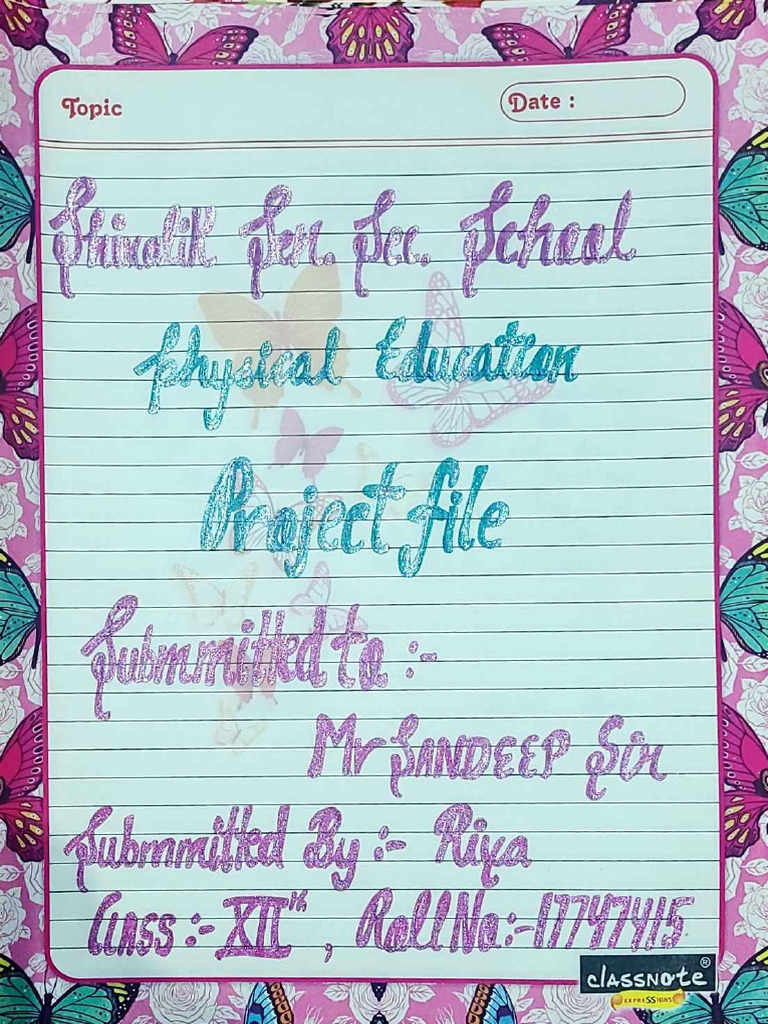 Topic
Date :
Shivalik Sen. Sec. School
Physical Education
Project file
Submmitted to :-
Mr SANDEEP Sir
Submmitted By :- Riya
Class :- XIIth , Roll No:- 17747415
classnote®
EXPRESSIONS